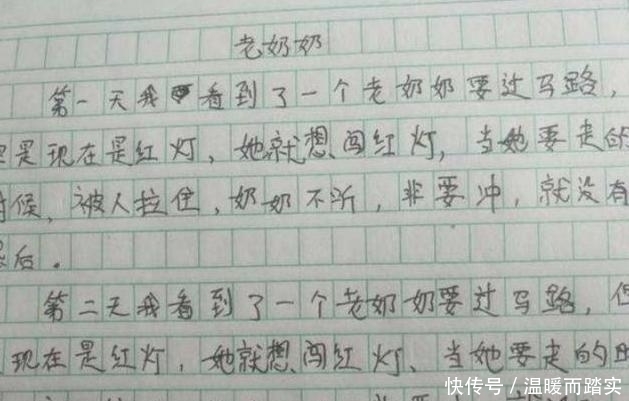 老奶奶
第一天我看到了一个老奶奶要过马路,
是现在是红灯,她就想闯红灯,当她要走的
时候,被人拉住,奶奶不听,非要冲,就没有
后。
第二天我看到了一个老奶奶要过马路,但
现在是红灯,她就想闯红灯、当她要走的时
快传号/温暖而踏实